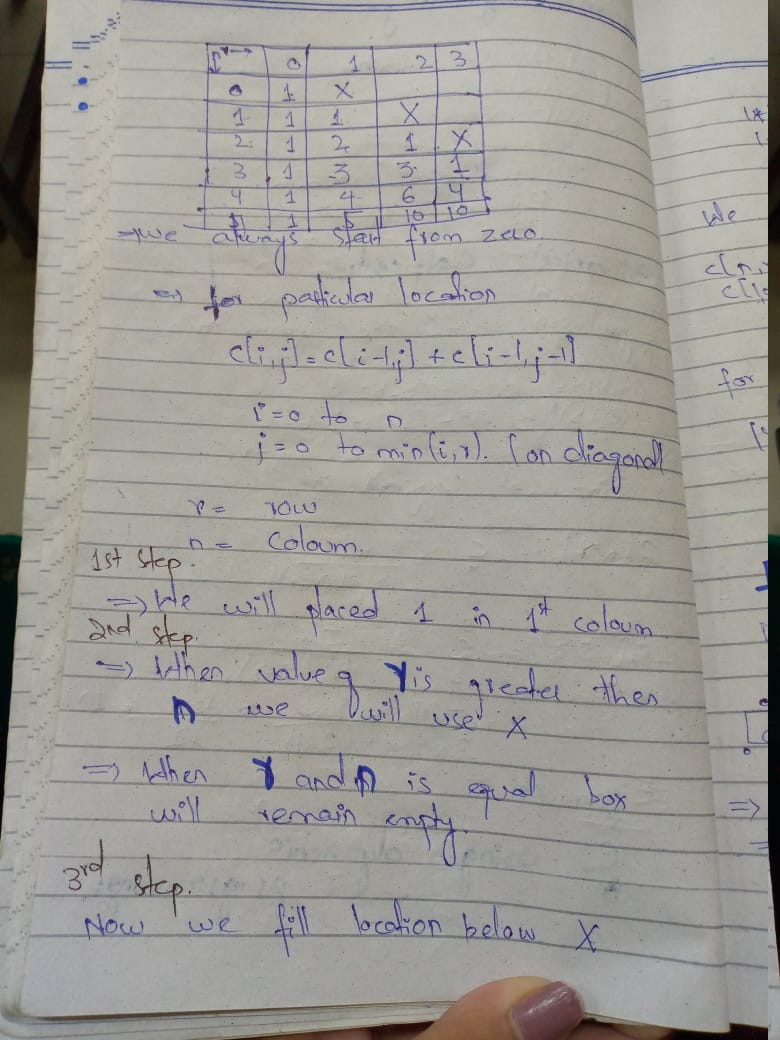 i j 0 1 2 3
0 1 X
1 1 1 X
2 1 2 1 X
3 1 3 3 1
4 1 4 6 4
1 10 10
⇒ we always start from zero
⇒ for particular location
c[i,j] = c[i-1,j] + c[i-1,j-1]
i=0 to n
j=0 to min(i,r). (on diagonal)
r = row
n = Coloum.
1st step.
⇒ We will placed 1 in 1st coloum
2nd step.
⇒ When value of r is greater then
n we will use X
⇒ When r and n is equal box
will remain empty.
3rd step.
Now we fill location below X
We
for
⇒